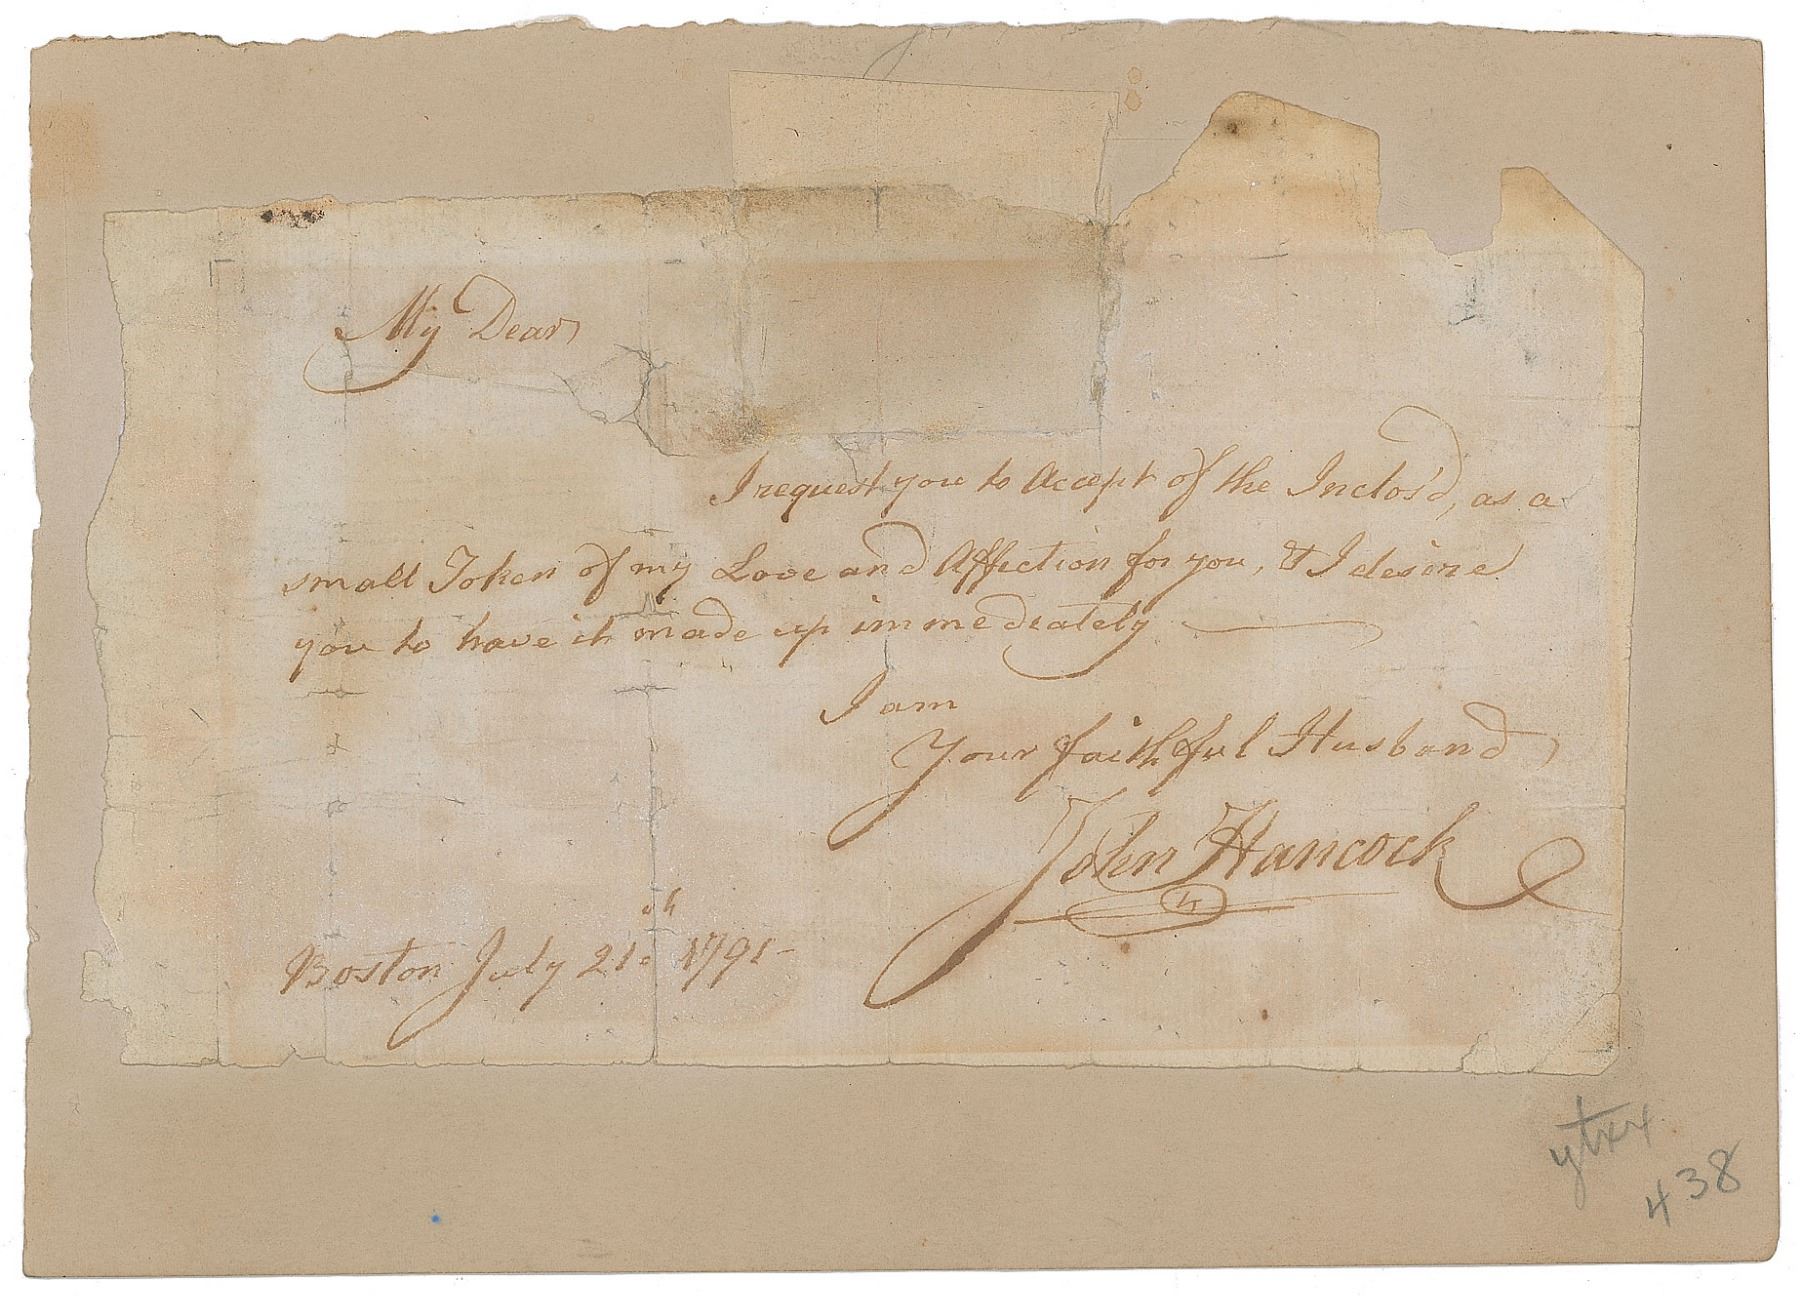 My Dear
I request you to Accept of the Inclos'd, as a
small Token of my Love and Affection for you, & I desire
you to have it made up immediately
I am
Your faithful Husband
John Hancock
Boston July 21th 1791
438